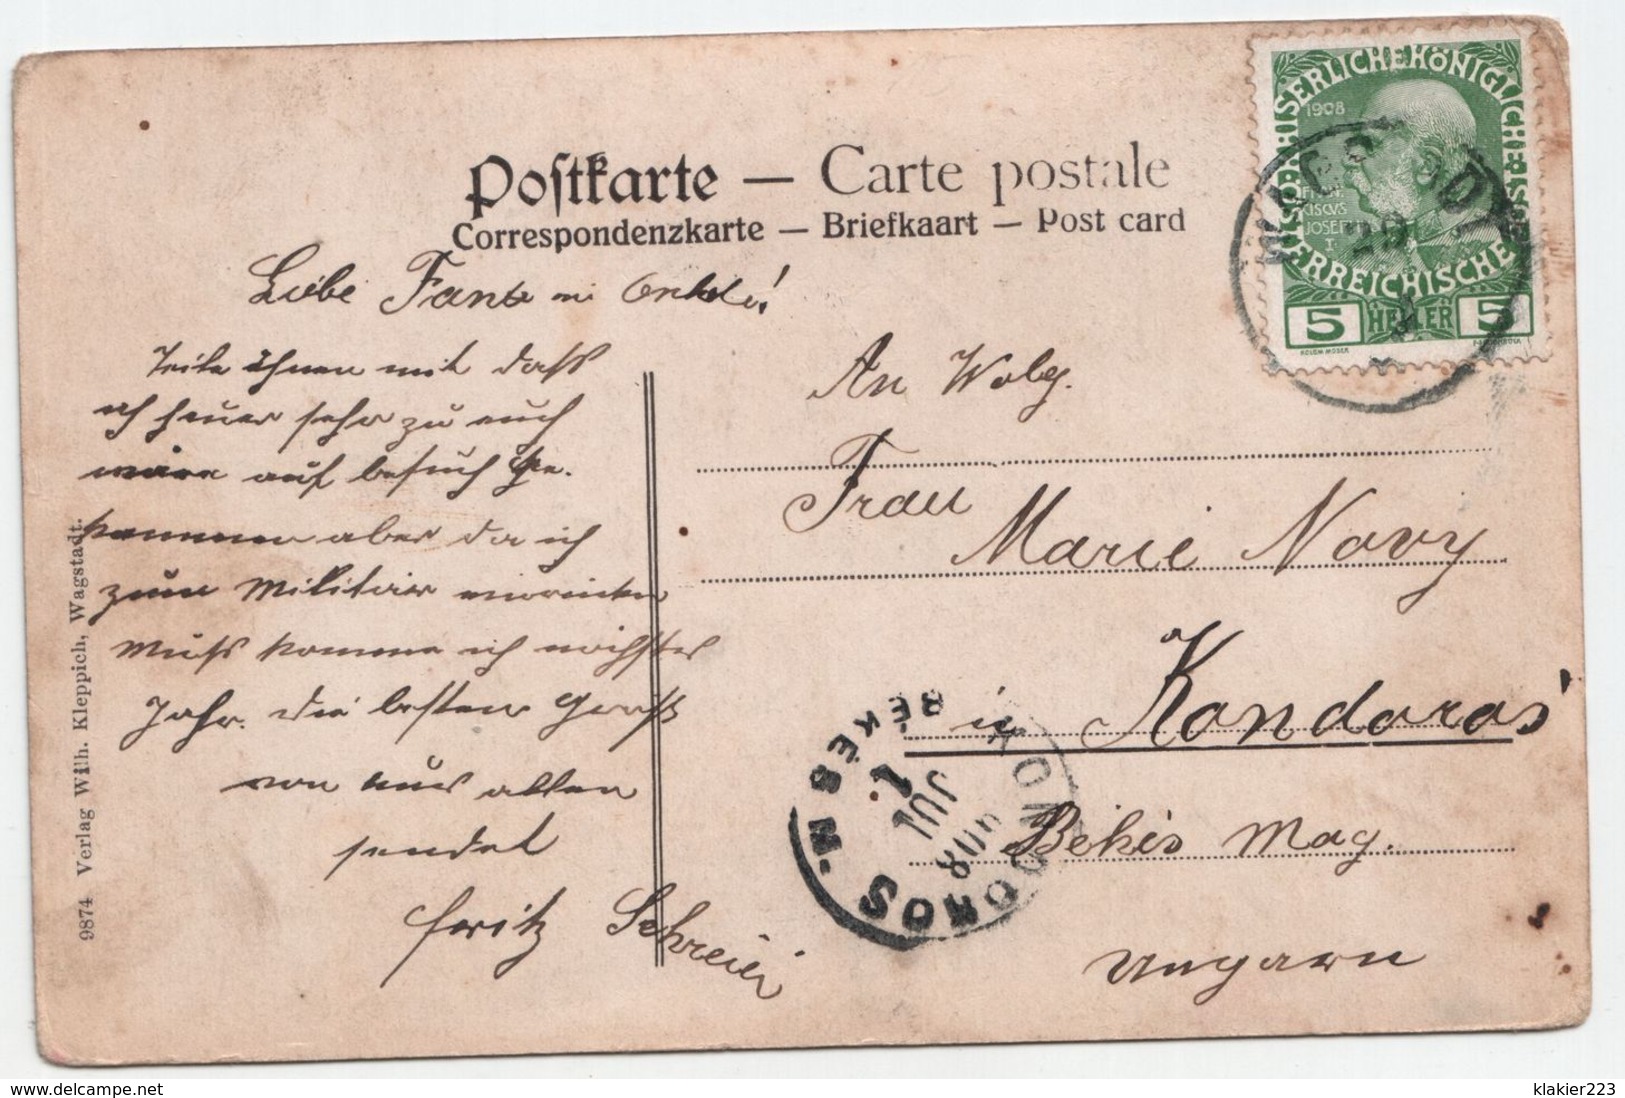 Postkarte — Carte postale
Correspondenzkarte — Briefkaart — Post card
KAISERLICHE KÖNIGLICHE ÖSTERREICHISCHE
1908
5 HELLER 5
WAGSTADT
Liebe Tante Onkel!
Teile ihnen mit dass
ich heuer sehr zu euch
wäre auf besuch ge.
kommen aber da ich
zum Militär einrücken
muss komme ich nächstes
Jahr. die besten Gruß
von uns allen
sendet
Fritz Schreier
An Wolg.
Frau
Marie Novy
in Kondoros
Bekés Mag.
Ungarn
KONDOROS
BÉKÉS M.
908
JUL
1
9874 Verlag Wilh. Kleppich, Wagstadt.
www.delcampe.net
klakier223